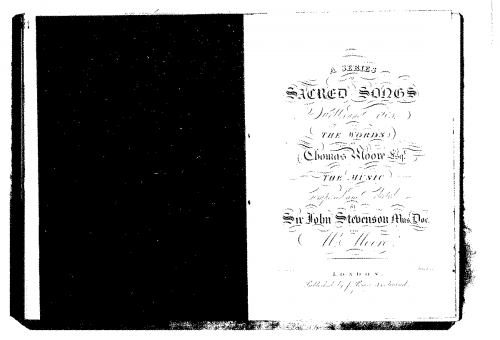 A SERIES
OF
SACRED SONGS
THE WORDS
Thomas Moore Esqr.
THE MUSIC
Composed and Selected
BY
Sir John Stevenson Mus. Doc.
AND
Mr. Moore
LONDON
Published by J. Power